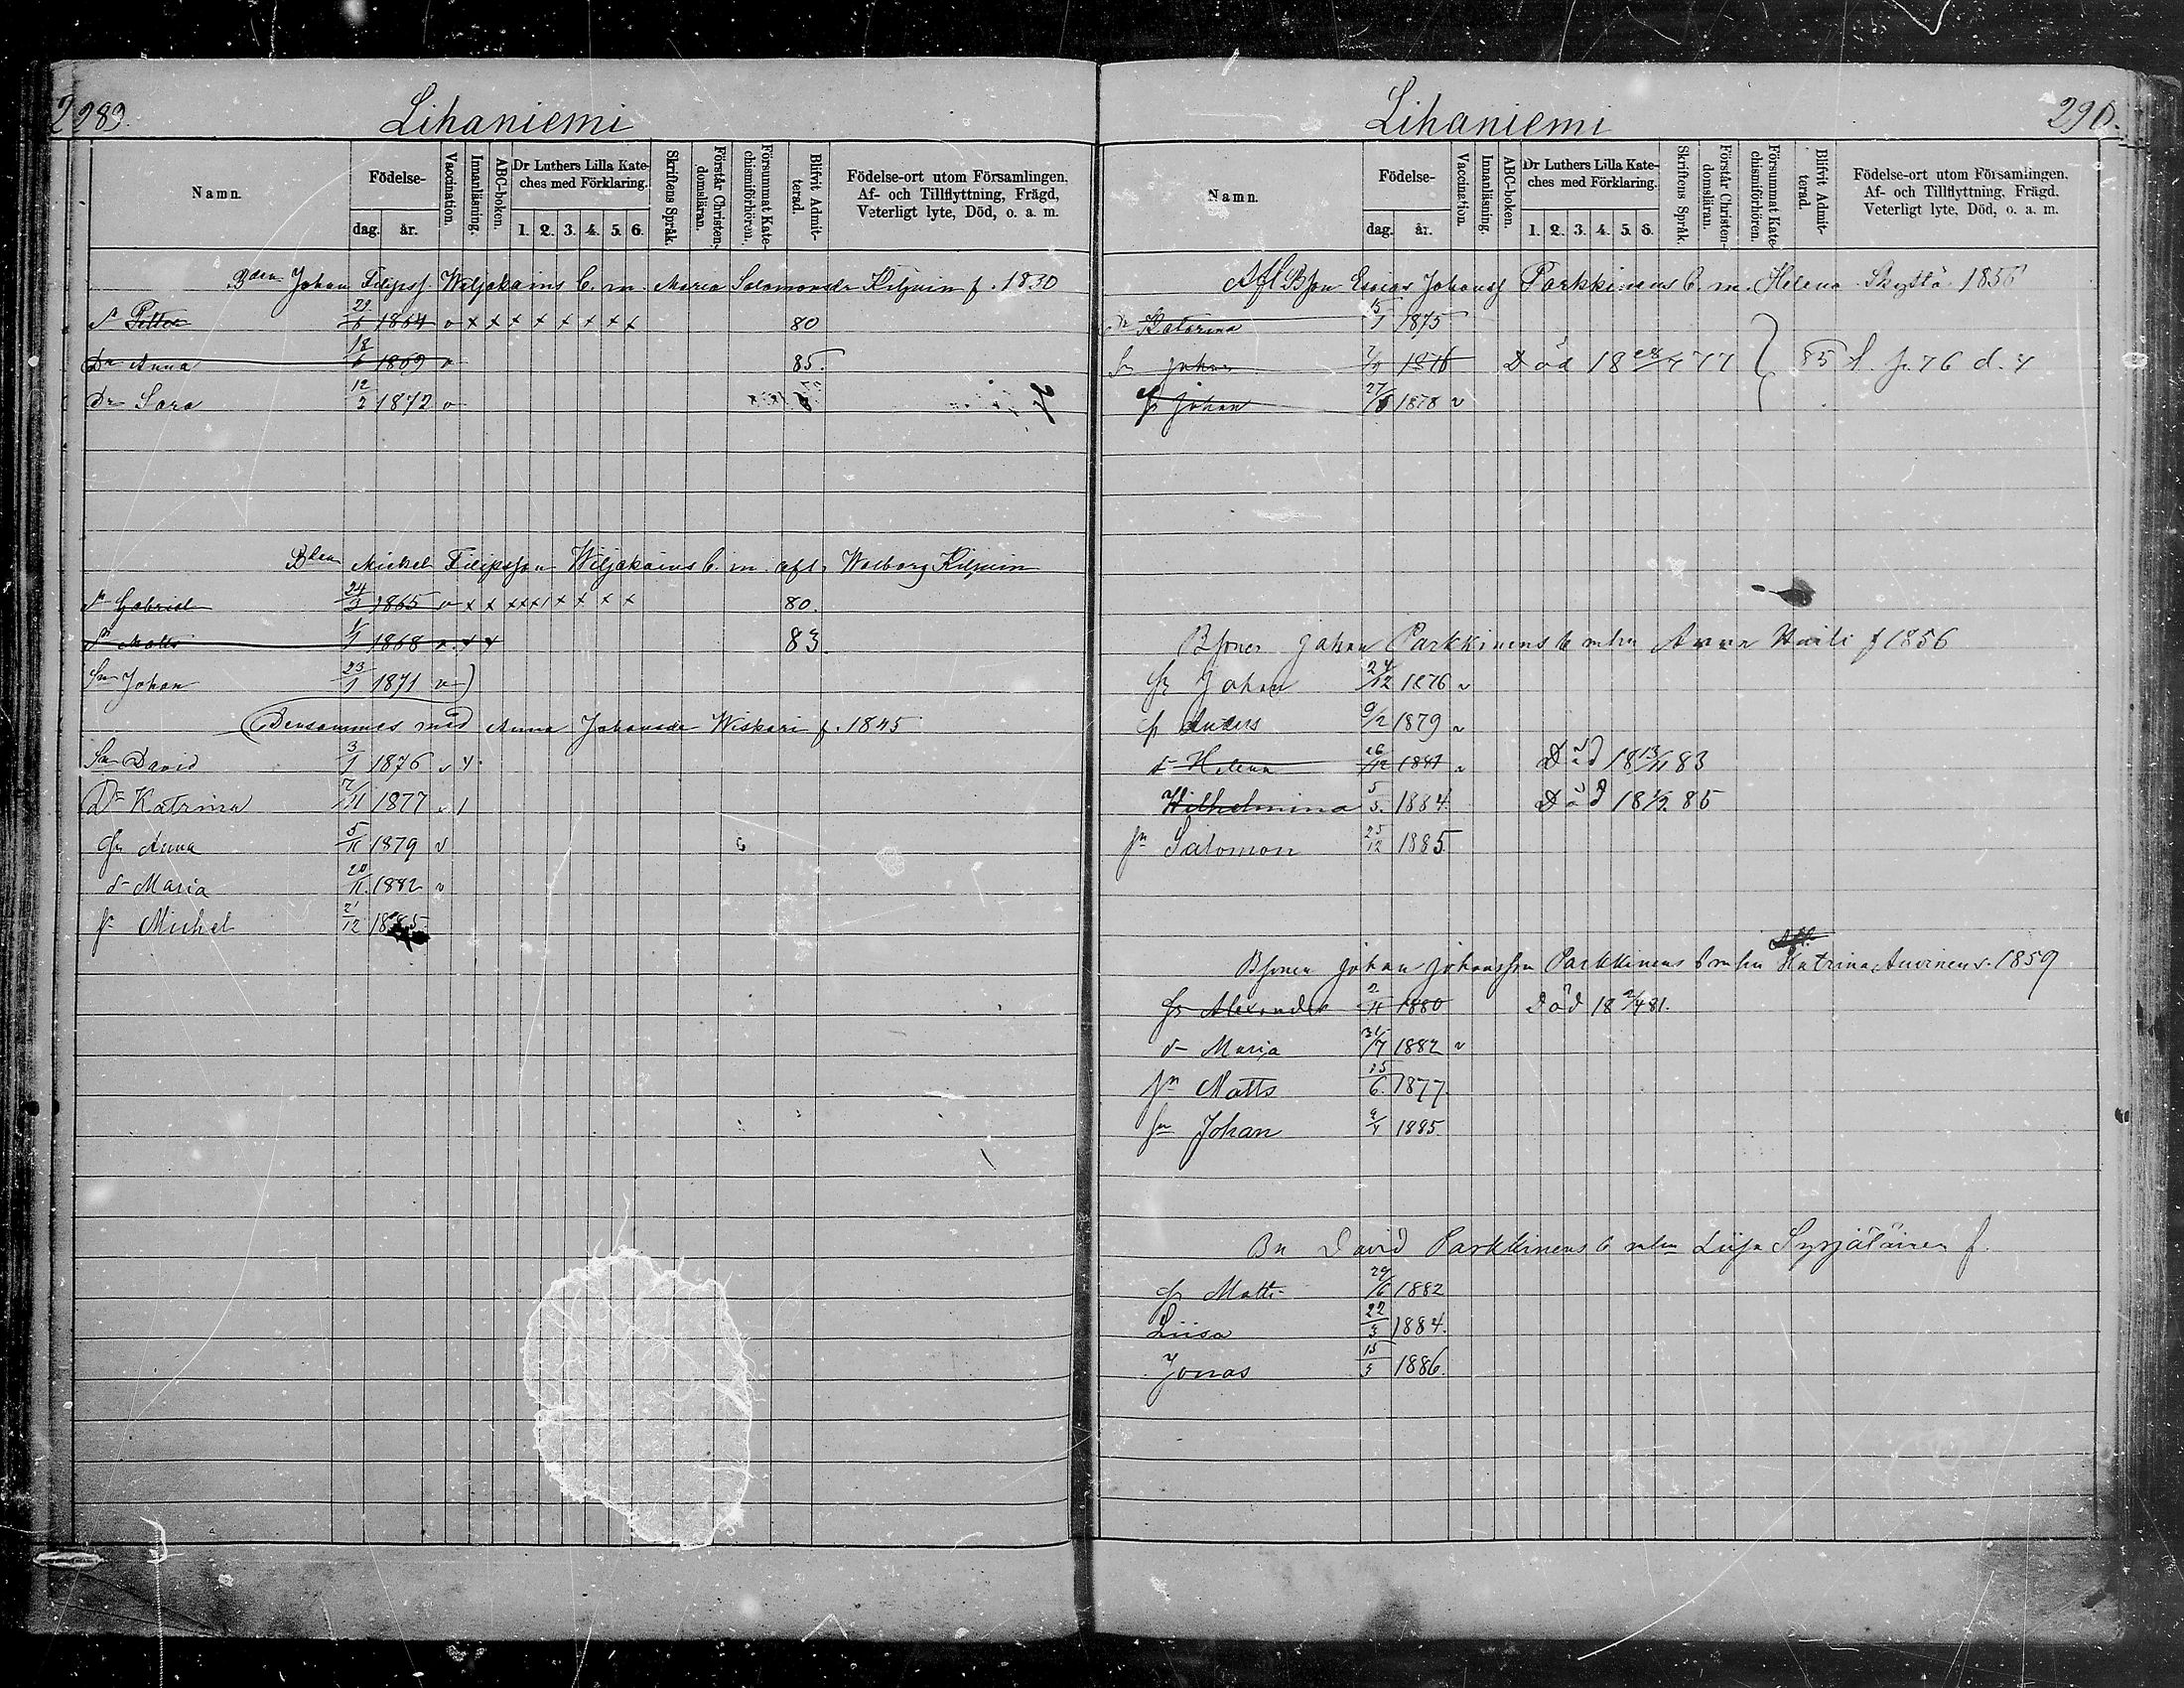 289.
Lihaniemi
Namn.
Födelse-
dag. år.
Vaccination.
Innanläsning.
ABC-boken.
Dr Luthers Lilla Kate-
ches med Förklaring.
1. 2. 3. 4. 5. 6.
Skriftens Språk.
Förstår Christen-
domsläran.
Försummat Kate-
chismiförhören.
Blifvit Admit-
terad.
Födelse-ort utom Församlingen,
Af- och Tillflyttning, Frägd,
Veterligt lyte, Död, o. a. m.
Bden Johan Filipss. Wiljakains b. m. Maria Salomonsdr Kilpiin f. 1830
Petter 29/6 1864 v x x x x x x x x 80
Dr Anna 18/6 1869 v 85.
Dr Sara 12/2 1872 v
Bden Michel Filipsson Wiljakains b. m. afl. Walborg Kilpiin
Gabriel 24/3 1865 v x x x x x 1 x x x x 80.
Matts 1/1 1868 v x x 83.
Sn Johan 23/1 1871 v
Densammes med Anna Johansdr Wiskari f. 1845
Sn David 3/1 1876 v x
Dr Katrina 7/11 1877 v 1
Anna 5/11 1879 v
d- Maria 20/11. 1882 v
Michel 21/12 1885
290.
Lihaniemi
Namn.
Födelse-
dag. år.
Vaccination.
Innanläsning.
ABC-boken.
Dr Luthers Lilla Kate-
ches med Förklaring.
1. 2. 3. 4. 5. 6.
Skriftens Språk.
Förstår Christen-
domsläran.
Försummat Kate-
chismiförhören.
Blifvit Admit-
terad.
Födelse-ort utom Församlingen.
Af- och Tillflyttning, Frägd.
Veterligt lyte, Död, o. a. m.
Afl Bson Esaias Johanss Parkkinens b. m. Helena Skyttä 1856
Katarina 15/1 1875
Sn Johan 1876 Död 18 28/4 77 } 85 f. 76 d. 4
Johan 27/6 1878 v
Bsonen Johan Parkkinens b mhu Anna Huili f 1856
Johan 24/12 1876 v
Anders 9/2 1879 v
d- Helena 26/12 1881 v Död 18 13/11 83
Wilhelmina 5/3. 1884 Död 18 1/2 85
Salomon 25/12 1885
Afl.
Bsonen Johan Johansson Parkkinens b mhu Katrina Auvinen f. 1859
Alexander 2/11 1880 Död 18 2/4 81.
d- Maria 31/7 1882 v
Matts 15/6. 1877.
Sn Johan 1885.
Bn David Parkkinens b mhu Liisa Syrjäläinen f.
Matts 29/6 1882
Liisa 22/3 1884.
Jonas 15/3 1886.